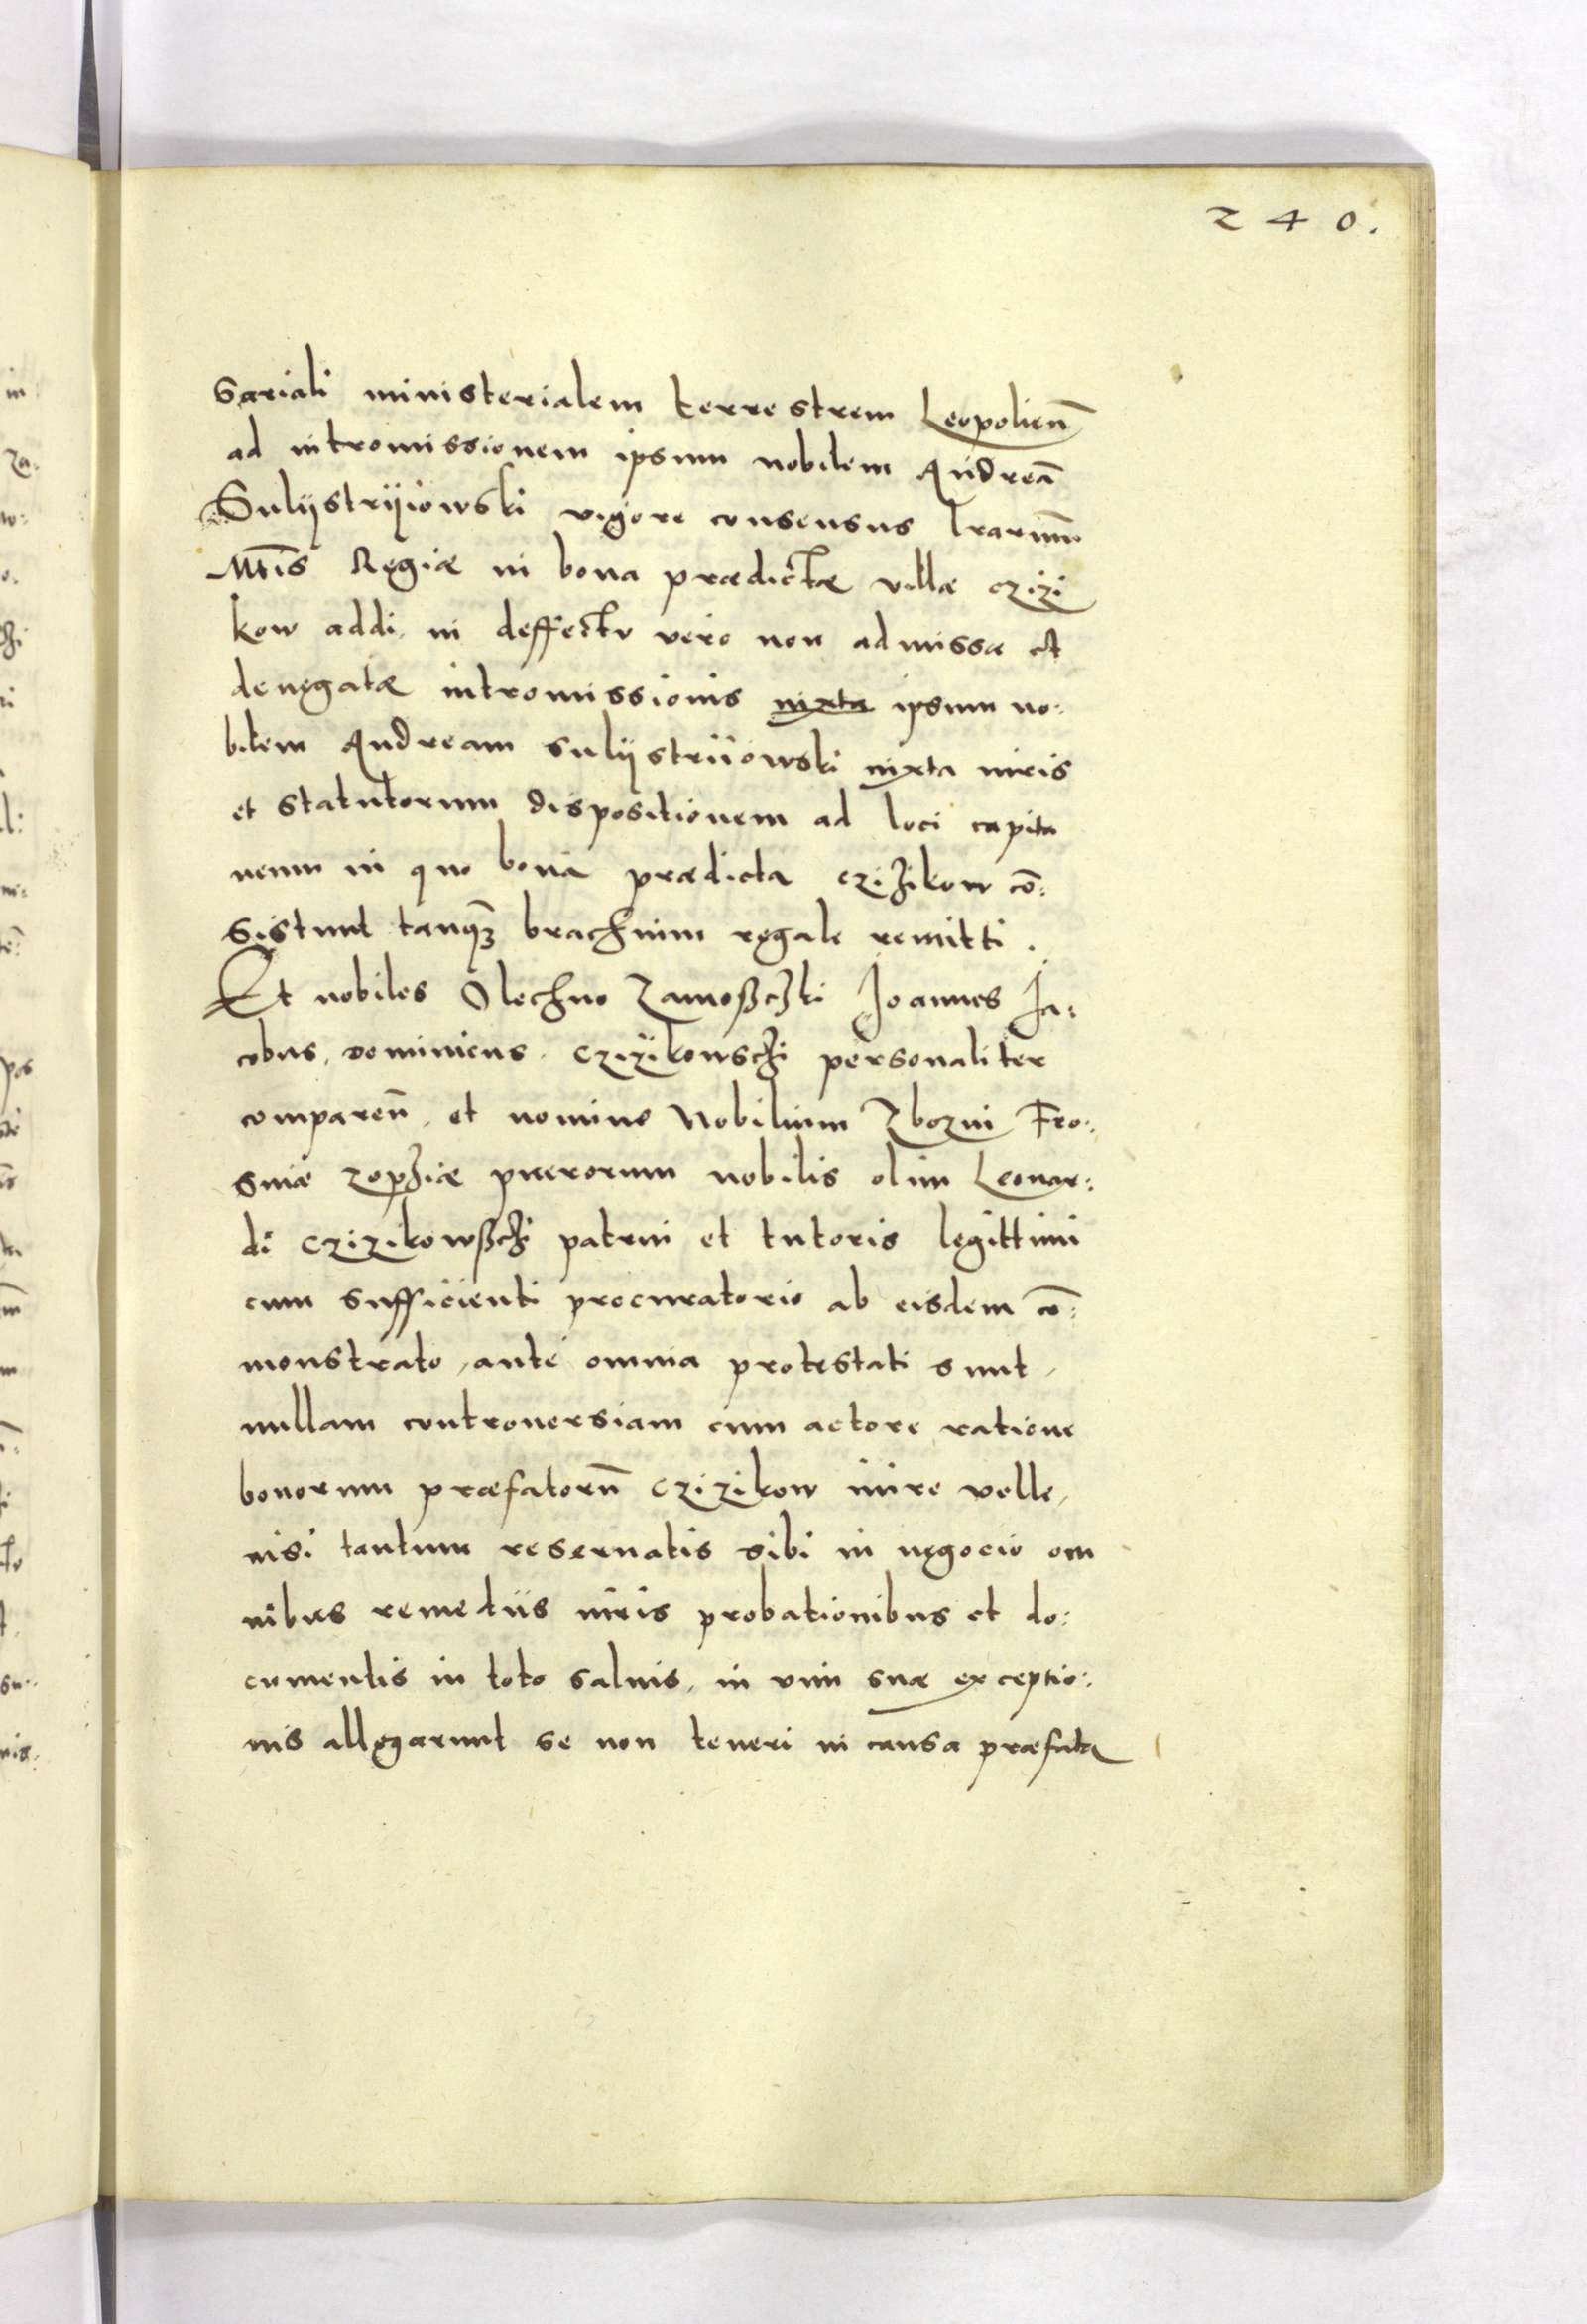 240.
sariali ministerialem terrestrem Leopolieñ
ad intromissionem ipsum nobilem Andreã
Sulÿstrÿiowski vigore consensus lrarum̃
Mt̃is Regiæ in bona prædictæ villæ Czizi
kow addi, in deffectu vero non admissæ et
denegatæ intromissionis iuxta ipsum no:
bilem Andream Sulÿstriiowski iuxta iuris
et statutorum dispositionem ad loci capita
neum in quo bona prædicta Czizikow cõ:
sistunt tanqȝ brachium regale remitti.
Et nobiles Olechno Zamoßczki Joannes Ja:
cobus, Dominicus Czizikowschi personaliter
compareñ, et nomine Nobilium Zbozni Fro:
sinæ Zophiæ puerorum nobilis olim Leonar:
di Czizikowßchi patrui et tutoris legittimi
cum sufficienti procuratorio ab eisdem cõ:
monstrato, ante omnia protestati sunt,
nullam controuersiam cum actore ratione
bonorum præfatorũ Czizikow inire velle,
nisi tantum reseruatis sibi in negocio om
nibus remediis iuris probationibus et do:
cumentis in toto saluis, in vim suæ exceptio:
nis allegarunt se non teneri in causa præfata